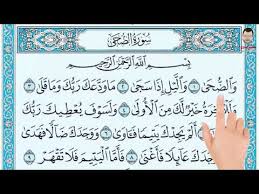 سُورَةُ الضُّحَىٰ
بِسْمِ اللَّهِ الرَّحْمَٰنِ الرَّحِيمِ
وَالضُّحَىٰ ١ وَاللَّيْلِ إِذَا سَجَىٰ ٢ مَا وَدَّعَكَ رَبُّكَ وَمَا قَلَىٰ ٣
وَلَلْآخِرَةُ خَيْرٌ لَّكَ مِنَ الْأُولَىٰ ٤ وَلَسَوْفَ يُعْطِيكَ رَبُّكَ
أَلَمْ يَجِدْكَ يَتِيمًا فَآوَىٰ ٦ وَوَجَدَكَ ضَالًّا فَهَدَىٰ
عَائِلًا فَأَغْنَىٰ ٨ فَأَمَّا الْيَتِيمَ فَلَا تَقْهَرْ ٩